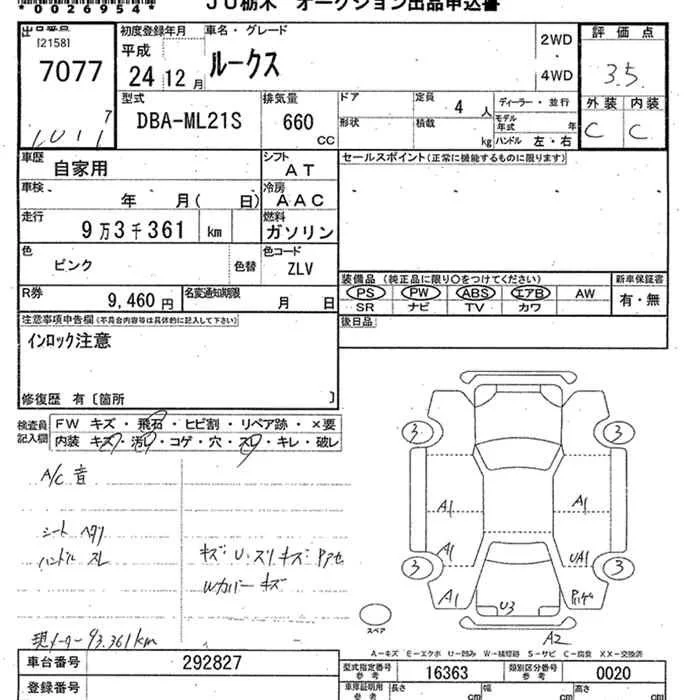 *0026954*
JU栃木 オークション出品申込書
[2158]
7077
初度登録年月
平成
24 12 月
車名・グレード
ルークス
2WD
4WD
評価点
3.5
外装 内装
C C
型式
DBA-ML21S
排気量
660
cc
ドア
形状
定員
4 人
積載
kg
ディーラー・並行
モデル年式 年
ハンドル 左・右
車歴
自家用
シフト
AT
セールスポイント(正常に機能するものに限ります)
車検
年 月( 日)
冷房
AAC
走行
9万3千361 km
燃料
ガソリン
色
ピンク
色替
色コード
ZLV
R券
9,460円
名変通知期限
月 日
装備品(純正品に限り○をつけてください)
PS PW ABS エアB AW
SR ナビ TV カワ
新車保証書
有・無
後日品
注意事項申告欄(不具合内容等は具体的に記入して下さい)
インロック注意
修復歴 有[箇所 ]
検査員
記入欄
FW キズ・飛石・ヒビ割・リペア跡・×要
内装 キズ・汚レ・コゲ・穴・スレ・キレ・破レ
A/C 音
シート ヘタリ
ハンドル スレ
キズ・U・スリキズ・
Wカバー キズ
現メーター 93,361km
3 3
A1 A1
A1 UA1
3 3
A1 U3
A2
スペア
A－キズ E－エクボ U－凹み W－補修跡 S－サビ C－腐食 XX－交換済
車台番号
292827
登録番号
型式指定番号
参考
16363
類別区分番号
参考
0020
車庫証明用
参考
長さ
cm
幅
cm
高さ
cm